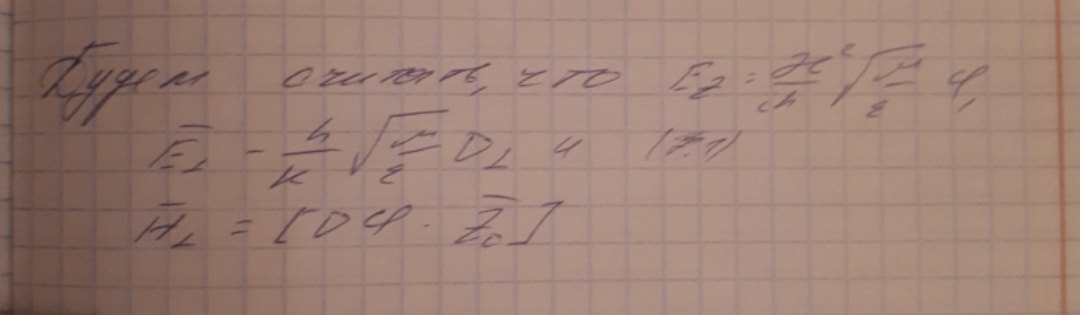 Будем считать, что E_z = æ²/k √(μ/ε) φ,
E̅_⊥ - h/k √(μ/ε) D_⊥ и (7.1)
H̅_⊥ = [Dφ · Z̅_0]